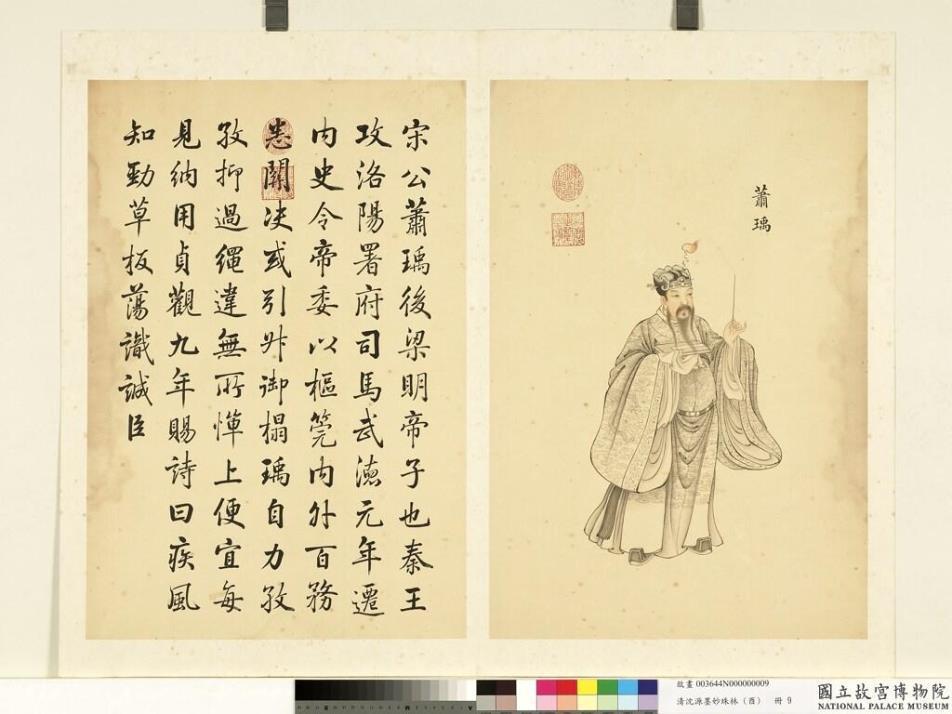 蕭瑀
宋公蕭瑀後梁明帝子也秦王
攻洛陽署府司馬武德元年遷
内史令帝委以樞筦内外百務
悉關决或引升御榻瑀自力孜
孜抑過繩違無所憚上便宜每
見納用貞觀九年賜詩曰疾風
知勁草板蕩識誠臣
故畫 003644N000000009
清沈源墨妙珠林(酉) 冊 9
國立故宮博物院
NATIONAL PALACE MUSEUM